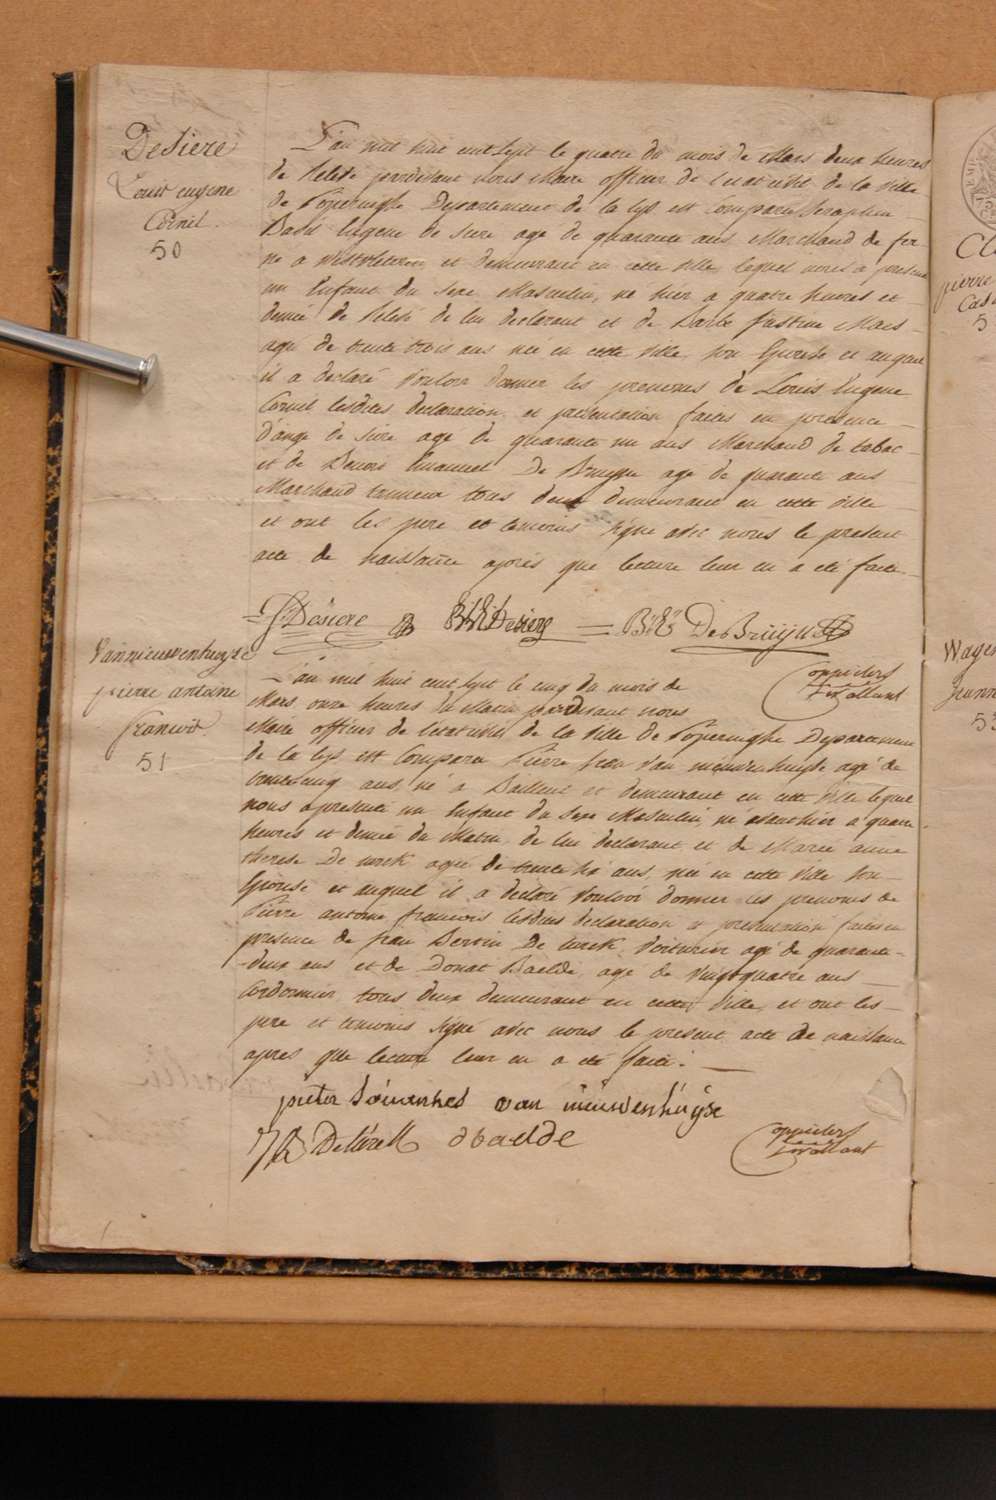 Desiere
Louis eugene
Cornil
50
L'an mil huit cent sept le quatre du mois de Mars deux heures
de Relevé pardevant nous Maire officier de l'etat civil de la Ville
de Poperinghe Departement de la lys est Comparu Seraphin
Basil Eugene de Siere agé de quarante ans Marchand de fer
né a Westvleteren et demeurant en cette ville, lequel nous a presenté
un Enfant du sexe Masculin, né hier a quatre heures et
demie de Relevé de lui declarant et de Barbe Justine Maes
agee de trente trois ans née en cette Ville, son Epouse et auquel
il a declaré Vouloir donner les prenoms de Louis Eugene
Cornil lesdites declaration et presentation faites en presence
D'ange de Siere agé de quarante un ans Marchand de tabac
et de Emanuel De Bruyne agé de quarante ans
Marchand tanneur tous deux demeurant en cette Ville
et ont les pere et temoins signé avec nous le present
acte de naissance après que lecture leur en a été faite
Desiere Desiere De Bruyne
Vannieuwenhuyse
pierre antoine
francois
51
L'an mil huit cent sept le cinq du mois de
Mars onze heures du Matin pardevant nous
Maire officier de l'etat civil de la Ville de Poperinghe Departement
de la lys est Comparu Pierre Van nieuwenhuyse agé de
trente cinq ans, né a Bailleul et demeurant en cette Ville lequel
nous a presenté un Enfant du sexe Masculin, né avanthier a quatre
heures et demie du Matin, de lui declarant et de Marie anne
therese De agee de trente six ans, née en cette Ville son
Epouse et auquel il a declaré Vouloir donner les prenoms de
Pierre antoine francois lesdites declaration et presentation faites en
presence de De Voiturier agé de quarante
deux ans et de Donat Baelde agé de Vingt quatre ans
Cordonnier, tous deux demeurant en cette Ville, et ont les
pere et temoins signé avec nous le present acte de naissance
apres que lecture leur en a été faite.
pieter van nieuwenhuyse
dbaelde
pierre
5
Wage